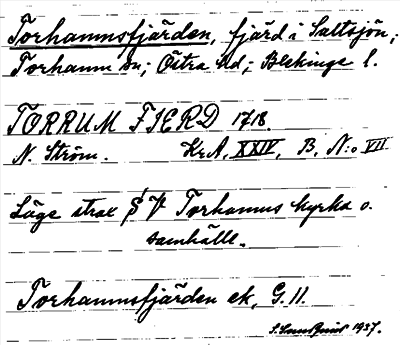 Torhamnsfjärden, fjärd i Saltsjön;
Torhamn sn; Östra hd; Blekinge l.
TORRUM FIERD 1718.
N. Ström. Kr. A. XXIV, B. N:o VII
Läge strax V Torhamns kyrka o.
samhälle.
Torhamnsfjärden ek. G. 11.
1937.